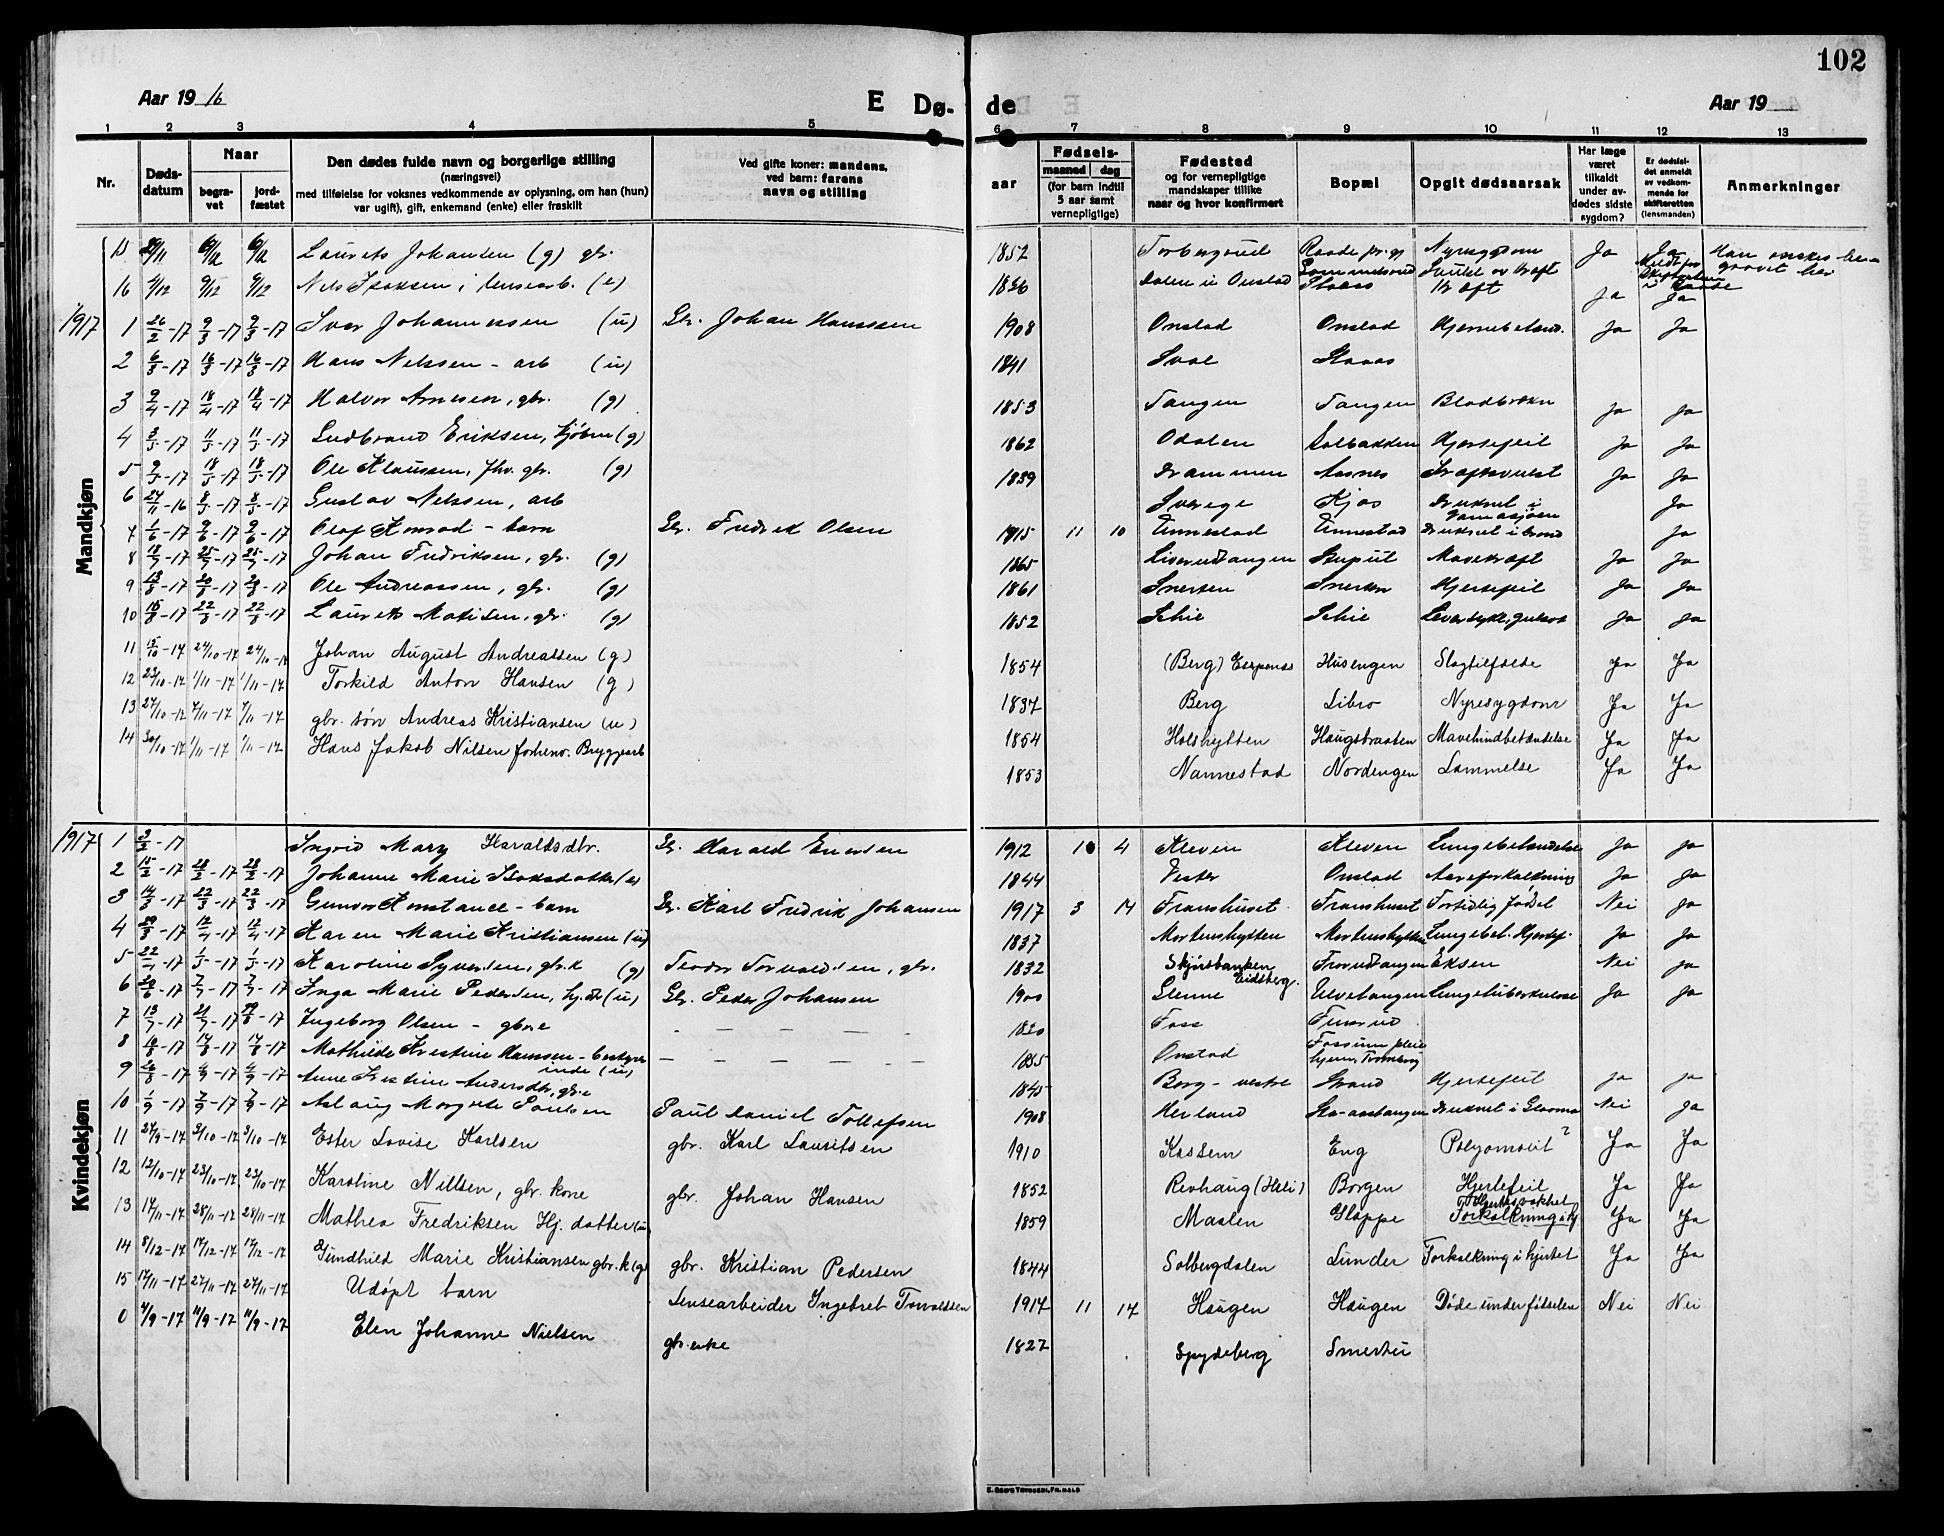 102
Aar 19 16
E Dø- de
Aar 19
1 2 3 4 5 6 7 8 9 10 11 12 13
Nr.
Døds-datum
Naar
begra-vet
jord-fæstet
Den dødes fulde navn og borgerlige stilling
(næringsvei)
med tilføielse for voksnes vedkommende av oplysning, om han (hun)
var ugift), gift, enkemand (enke) eller fraskilt
Ved gifte koner: mandens,
ved barn: farens
navn og stilling
aar
Fødsels-
maaned dag
(for barn indtil
5 aar samt
vernepligtige)
Fødested
og for vernepligtige
mandskaper tillike
naar og hvor konfirmert
Bopæl
Opgit dødsaarsak
Har læge
været
tilkaldt
under av-
dødes sidste
sygdom?
Er dødsfal-
det anmeldt
av vedkom-
mende for
skifteretten
(lensmanden)
Anmerkninger
Mandkjøn
15 29/11 6/12 6/12 Laurits Johansen (g) gbr. 1852 Torbergsrud Raade pr.gj. Nyresygdom Ja Ja Han ønskes be-
gravet her
16 4/12 9/12 9/12 Nels Isaksen, lensearb. (e) 1836 Dalen u Onstad Kræft Ja Ja
1917
1 26/2-17 9/3-17 9/3-17 Iver Johannessen (u) Gbr. Johan Hanssen 1908 Onstad Onstad Ja Ja
2 6/3-17 16/3-17 16/3-17 Hans Nelssen - arb (u) 1841
3 9/4-17 18/4-17 18/4-17 Halvor Arnesen, gbr. (g) 1853 Tangen Tangen Ja Ja
4 3/5-17 11/5-17 11/5-17 Gudbrand Eriksen, kjøbm (g) 1862 Odalen Solbakken Hjertefeil Ja Ja
5 9/5-17 18/5-17 18/5-17 Ole Klaussen, fhv. gbr. (g) 1839 Drammen Aasnes Kræftsvulst Ja Ja
6 27/11-16 8/5-17 8/5-17 Gustav Nelssen, arb Sverige Kjos Druknet i
Ja
7 1/6-17 9/6-17 9/6-17 Olaf Konrad - barn Gbr. Fredrik Olsen 1915 11 10 Unnestad Unnestad Druknet i brønd Ja
8 18/7-17 25/7-17 25/7-17 Johan Fredriksen, gbr. (g) 1865 Liverudtangen Skuput Mavekræft Ja Ja
9 13/8-17 20/8-17 20/8-17 Ole Andreassen, gbr. (g) 1861 Hjertefeil Ja Ja
10 15/8-17 22/8-17 22/8-17 Laurits Matisen, gbr. (g) 1852 Schie Schie Ja Ja
11 15/10-17 24/10-17 24/10-17 Johan August Andreassen (g) 1854 (Berg) Husengen Slagtilfælde Ja Ja
12 23/10-17 1/11-17 1/11-17 Torkild Anton Hansen (g) 1837 Berg Libro Nyresygdom Ja Ja
13 27/10-17 7/11-17 7/11-17 gbr. søn Andreas Kristiansen (u) 1854 Holshytten Haugsbraaten Mavehindbetændelse Ja Ja
14 30/10-17 1/11-17 1/11-17 Hans Jakob Nilsen forhenv. Bryggearb 1853 Nannestad Nordengen Lammelse Ja Ja
Kvindekjøn
1917
1 3/2-17 Ingrid Mary Haraldsdtr. Gbr. Harald Enersen 1912 10 4 Kleven Kleven Lungebetændelse Ja Ja
2 15/2-17 28/2-17 28/2-17 Johanne Marie Isaksdatter (e) 1844 Vester Onstad Aareforkalkning Ja Ja
3 14/3-17 22/3-17 22/3-17 Gunvor Konstance - barn Gbr. Karl Fredrik Johansen 1917 3 14 Franshuset Franshuset Fortidlig fødsel Nei Ja
4 29/3-17 12/4-17 12/4-17 Karen Marie Kristiansen (u) 1837 Mortenshytten Mortenshytten Lungebet. Hjertef. Ja Ja
5 22/4-17 1/5-17 1/5-17 Karoline Syversen, gbr.k (g) Teodor Torvaldsen, gbr. 1832 Eidsberg. Nei Ja
6 28/6-17 7/7-17 7/7-17 Inga Marie Pedersen, hj.dtr (u) Gbr. Peder Johansen 1900 Glenne Ulvetangen Lungetuberkulose Ja Ja
7 13/7-17 21/7-17 Ingeborg Olsen - gbr.e - - - - - 1830 Foss
8 10/8-17 17/8-17 17/8-17 Mathilde Kristine Hanssen - bestyrer
inde (u) - - - - - 1855 Onstad Fossum pleie
hjem,
9 26/8-17 4/9-17 4/9-17 Anne Kristine Andersdtr, gbr.e 1845 Berg - vestre Strand Hjertefeil Ja Ja
10 1/9-17 7/9-17 7/9-17 Aslaug Margrete Paulsen Paul Daniel Tollefsen 1908 Herland Druknet i Glomma Nei Ja
11 27/9-17 3/10-17 3/10-17 Ester Lovise Karlsen gbr. Karl Lauritsen 1910 Kassem Eng Polyomolit? Ja Ja
12 12/10-17 23/10-17 23/10-17 Karoline Nillsen, gbr. kone gbr. Johan Hansen 1852 Revhaug (Heli) Borgen Hjertefeil Ja Ja
13 17/11-17 28/11-17 28/11-17 Mathea Fredriksen Hj. datter (u) 1859 Maalen Glappe Hjertesvakhet
Forkalkning i hj Ja Ja
14 8/12-17 17/12-17 17/12-17 Gundhild Marie Kristiansen gbr.k (g) gbr. Kristian Pedersen 1844 Solbergdalen Lunder Forkalkning i hjertet Ja Ja
15 17/11-17 27/11-17 27/11-17 Udøpt barn Lensearbeider Ingebret Torvaldsen 1917 11 17 Haugen Haugen Døde under fødselen Nei Nei
0 4/9-17 11/9-17 11/9-17 Elen Johanne Nielsen gbr. enke 1827 Spydeberg